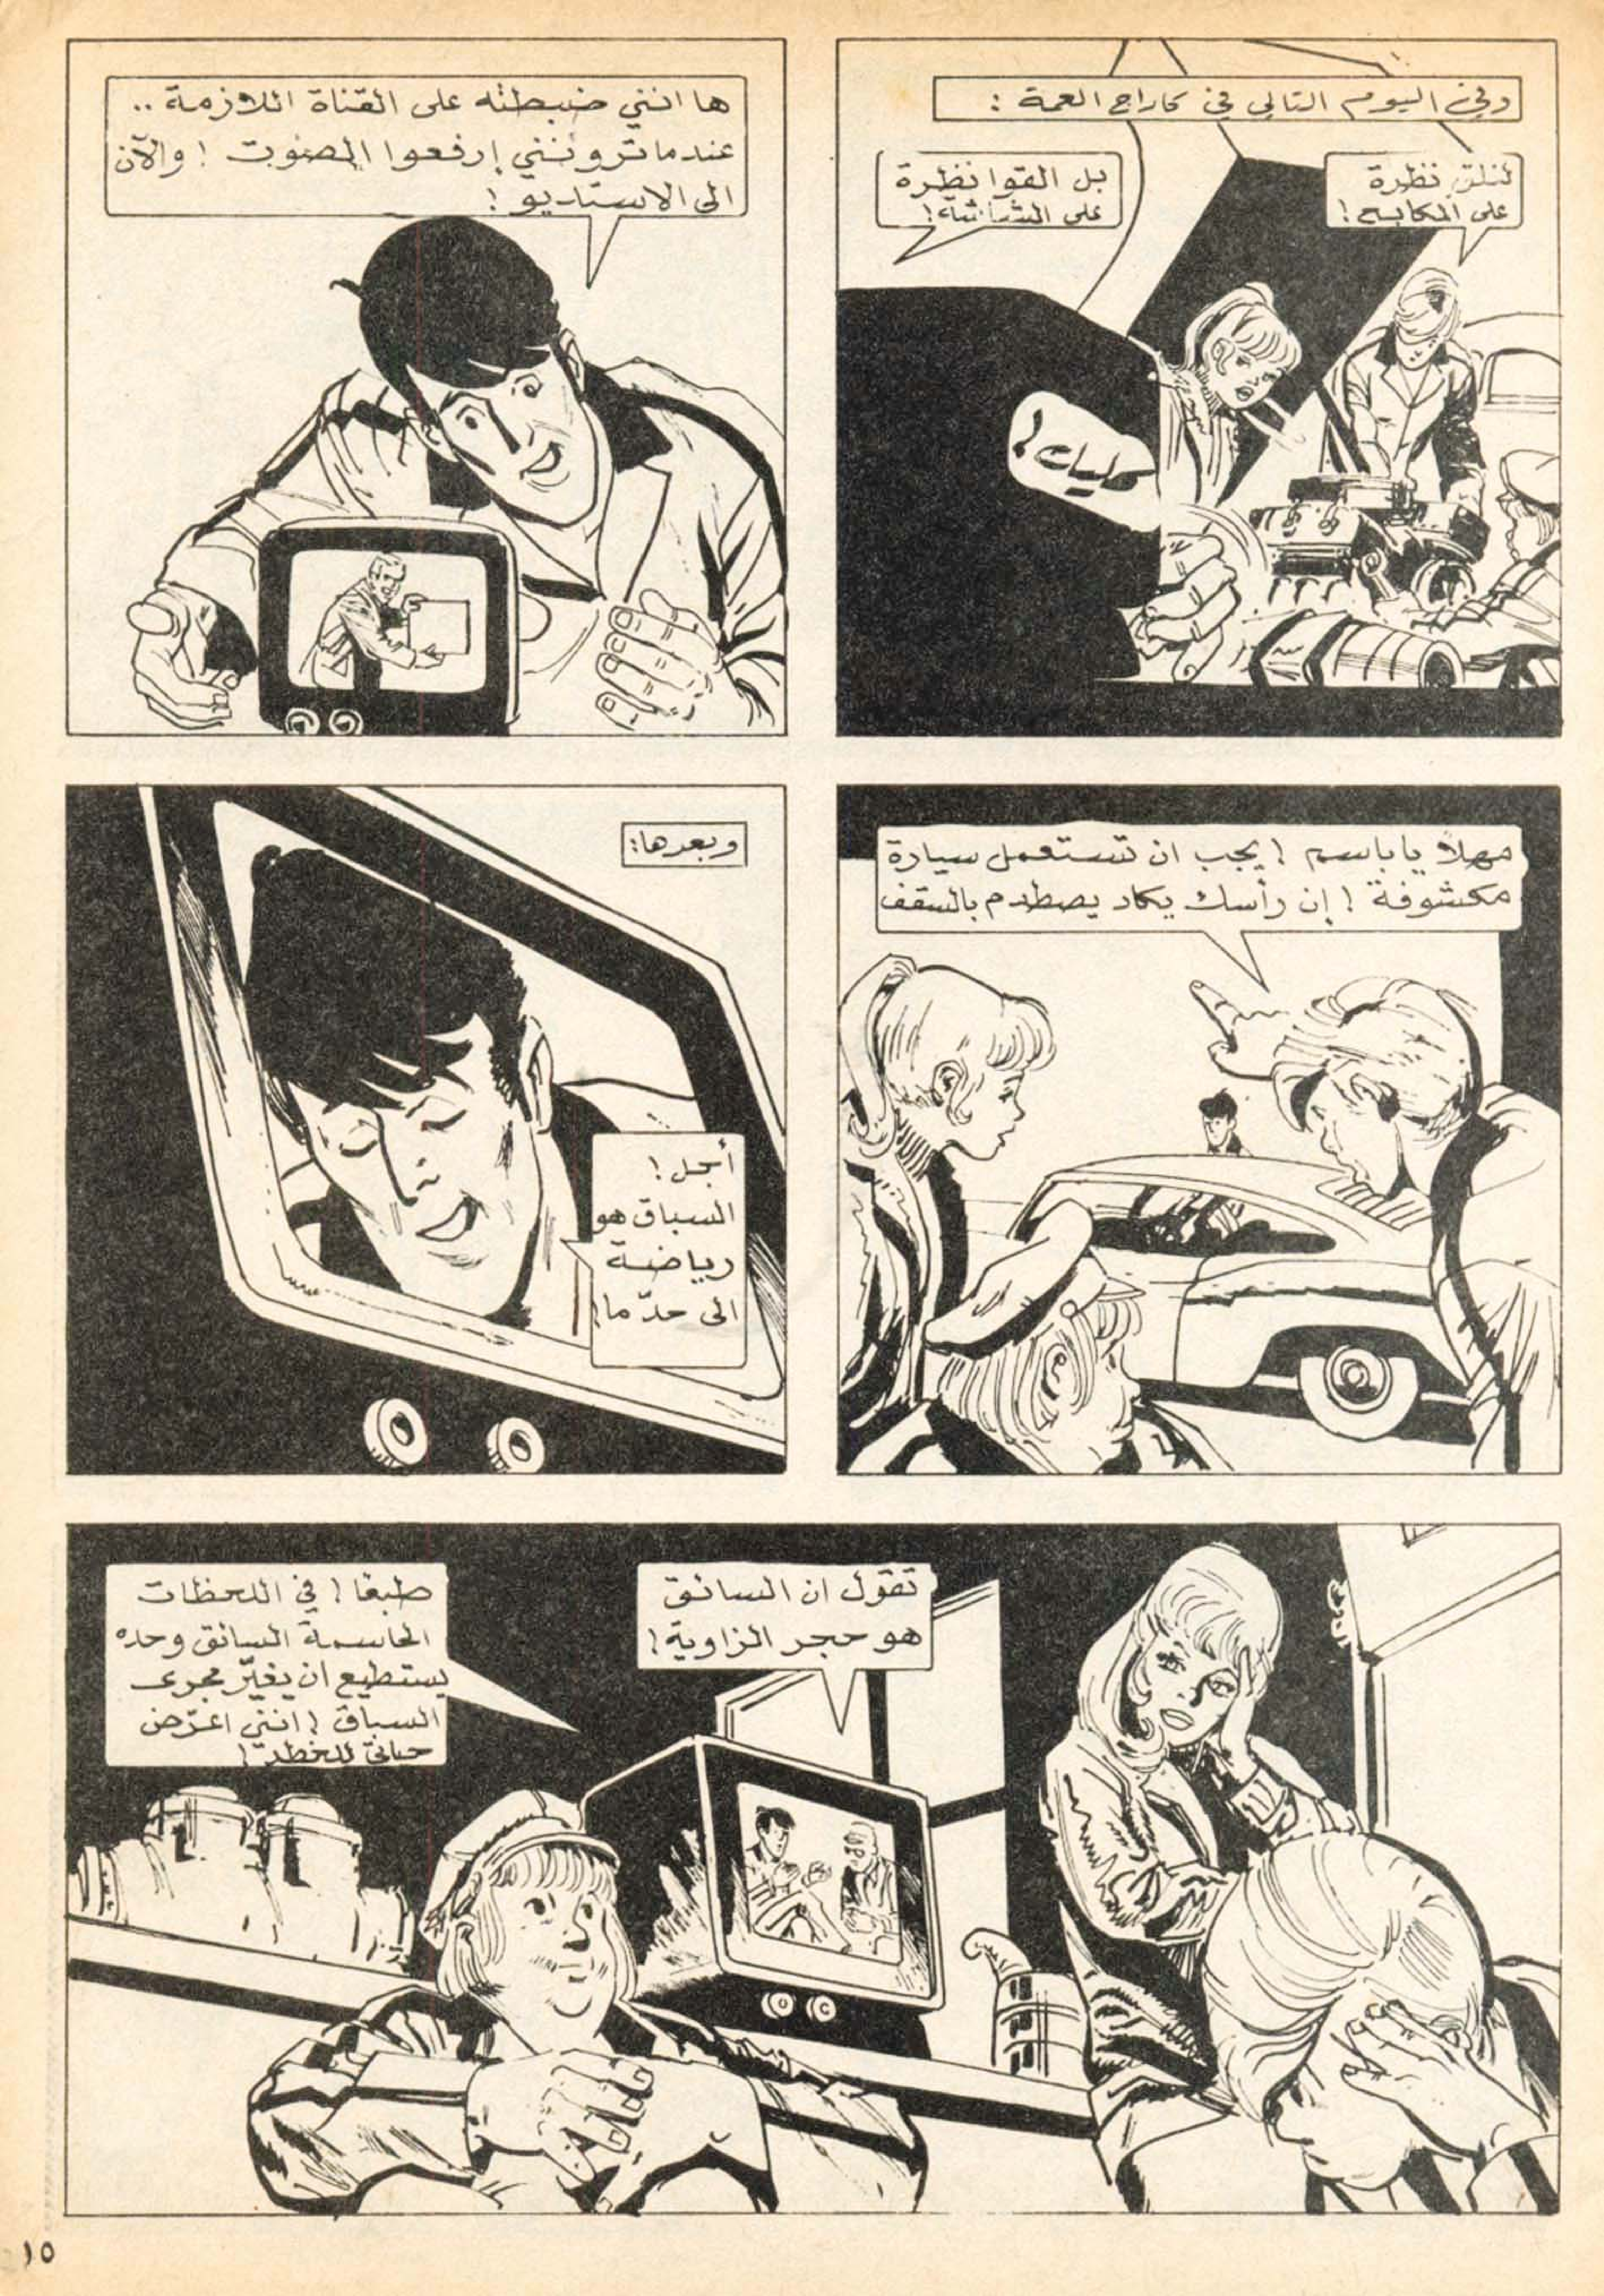 وفي اليوم التالي في كاراج العمة :
لنلق نظرة
على المكابح !
بل القوا نظرة
على الشاشة !
كليك !
ها انني ضبطته على القناة اللازمة ..
عندما ترونني إرفعوا الصوت ! والآن
الى الاستديو !
مهلا يا باسم ! يجب ان تستعمل سيارة
مكشوفة ! إن رأسك يكاد يصطدم بالسقف
وبعدها :
أجل !
السباق هو
رياضة
الى حدّ ما !
تقول ان السائق
هو حجر الزاوية !
طبعًا ! في اللحظات
الحاسمة السائق وحده
يستطيع ان يغيّر مجرى
السباق ! انني اعرّض
حياتي للخطر !
١٥